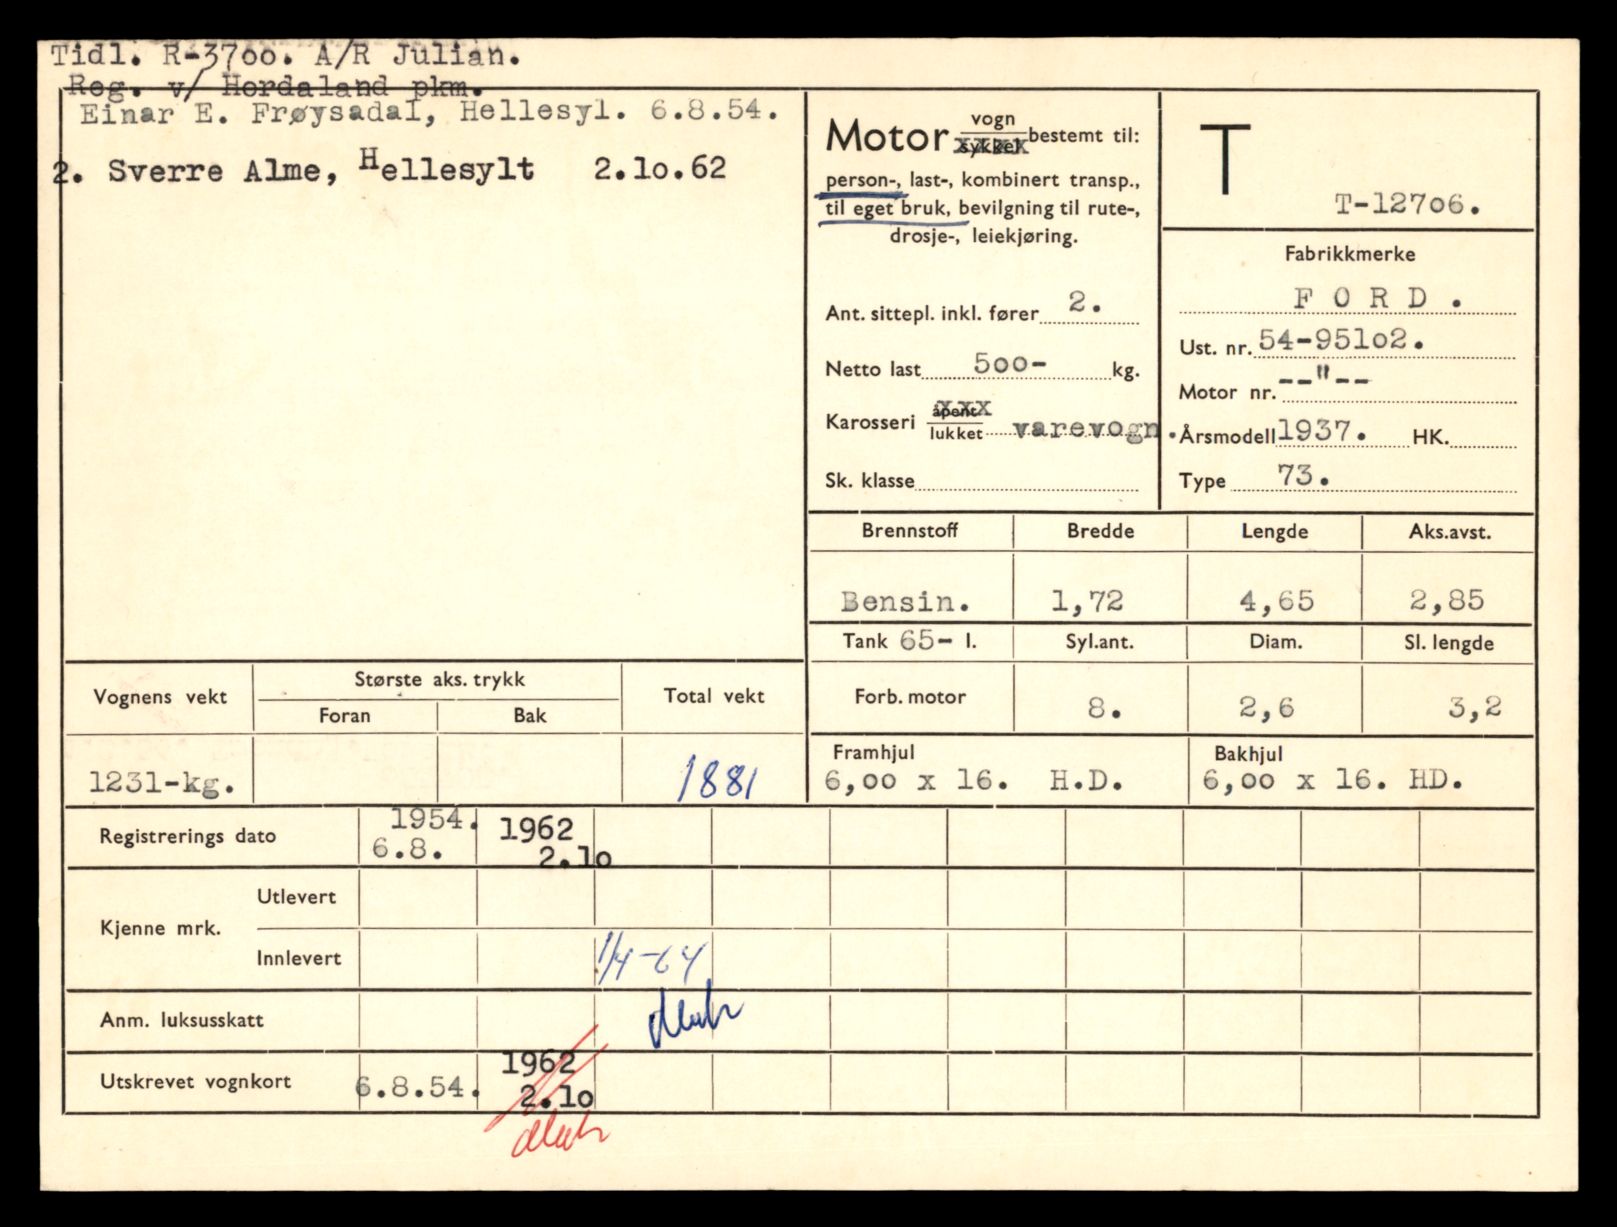 Tidl. R-37oo. A/R Julian.
Reg. v/ Hordaland pkm.
Einar E. Frøysadal, Hellesyl. 6.8.54.
2. Sverre Alme, Hellesylt 2.1o.62
Motor vogn
sykkel bestemt til:
person-, last-, kombinert transp.,
til eget bruk, bevilgning til rute-,
drosje-, leiekjøring.
Ant. sittepl. inkl. fører 2.
Netto last 5oo- kg.
Karosseri åpent
lukket varevogn.
Sk. klasse
T
T-127o6.
Fabrikkmerke
F O R D .
Ust. nr. 54-951o2.
Motor nr. --"--
Årsmodell 1937. HK.
Type 73.
Brennstoff Bredde Lengde Aks.avst.
Bensin. 1,72 4,65 2,85
Tank 65- l. Syl.ant. Diam. Sl. lengde
Forb. motor 8. 2,6 3,2
Framhjul Bakhjul
6,oo x 16. H.D. 6,oo x 16. HD.
Vognens vekt Største aks. trykk Total vekt
Foran Bak
1231-kg. 1881
Registrerings dato 1954. 1962
6.8. 2.1o
Kjenne mrk. Utlevert
Innlevert 1/4-64
Anm. luksusskatt
Utskrevet vognkort 6.8.54. 1962
2.1o